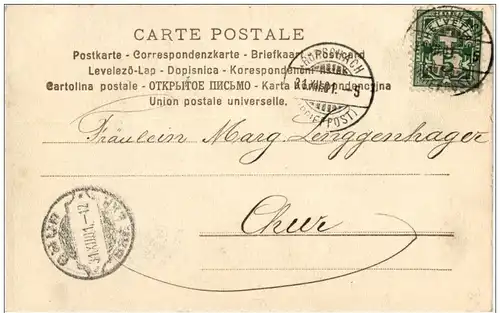 CARTE POSTALE
Postkarte - Correspondenzkarte - Briefkaart - Postcard
Levelező-Lap - Dopisnica - Korespondenční lístek
Cartolina postale - ОТКРЫТОЕ ПИСЬМО - Karta korespondencyjna
Union postale universelle.
HELVETIA
RORSCHACH
31.XII.01. - 9
BRIEFPOST
Fräulein Marg. Lenggenhager
Chur
CHUR
31.XII.01. - 12